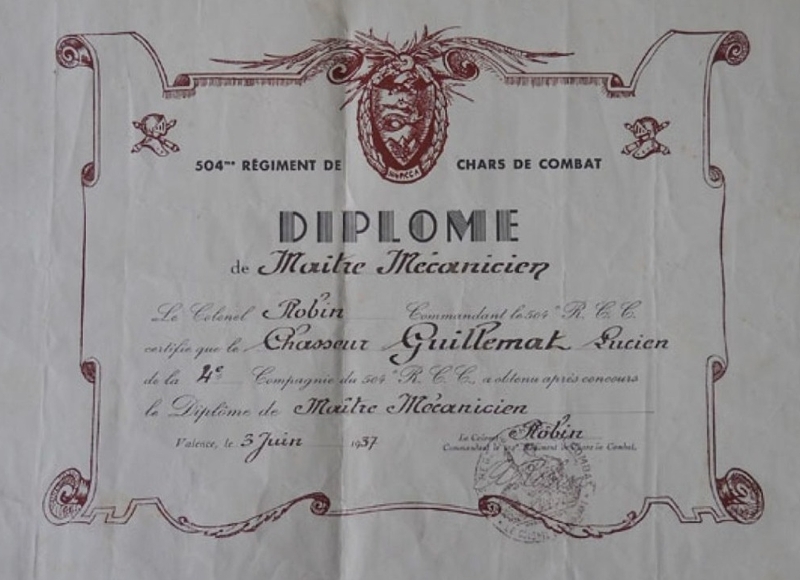 504me RÉGIMENT DE CHARS DE COMBAT
DIPLOME
de Maître Mécanicien
Le Colonel Robin Commandant le 504e R. C. C.
certifie que le Chasseur Guillemat Lucien
de la 4e Compagnie du 504e R. C. C. a obtenu après concours
le Diplôme de Maître Mécanicien
Valence, le 3 Juin 1937
Le Colonel Robin
Commandant le Régiment de Chars de Combat.